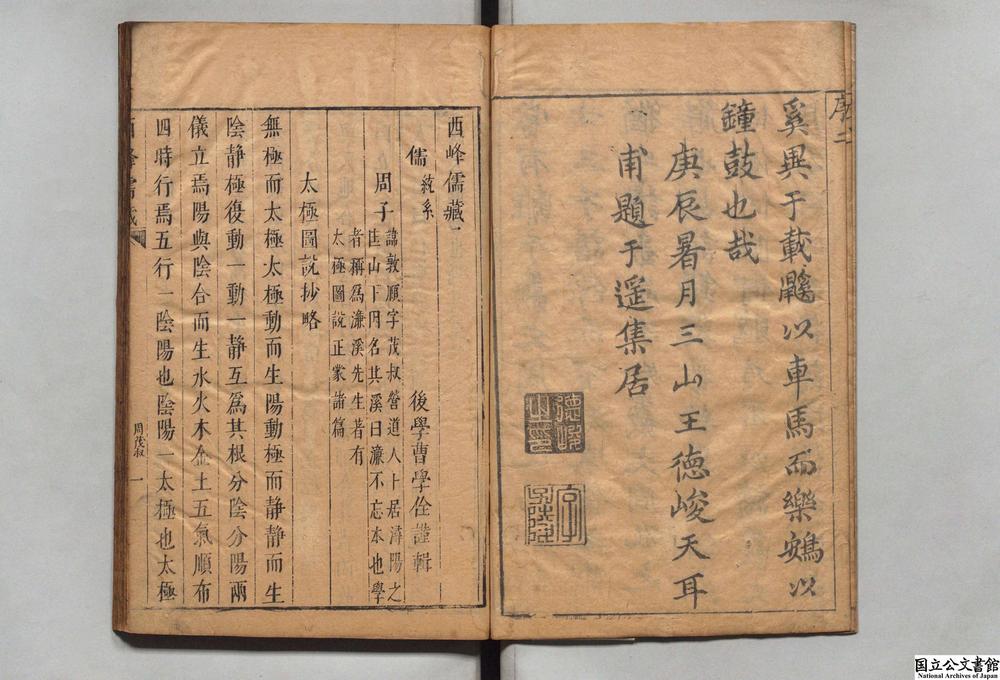 序二
奚異于載鼷以車馬而樂鴳以
鐘鼓也哉
庚辰暑月三山王德峻天耳
甫題于遥集居
德峻
之印
西峰儒藏一
儒統系
後學曹學佺謹輯
周子
諱敦頤字茂叔營道人卜居潯陽之
匡山下因名其溪曰濂不忘本也學
者稱為濂溪先生著有
太極圖說正蒙諸篇
太極圖說抄略
無極而太極太極動而生陽動極而靜靜而生
陰靜極復動一動一靜互為其根分陰分陽兩
儀立焉陽與陰合而生水火木金土五氣順布
四時行焉五行一陰陽也陰陽一太極也太極
西峰儒藏
周茂叔
一
国立公文書館
National Archives of Japan